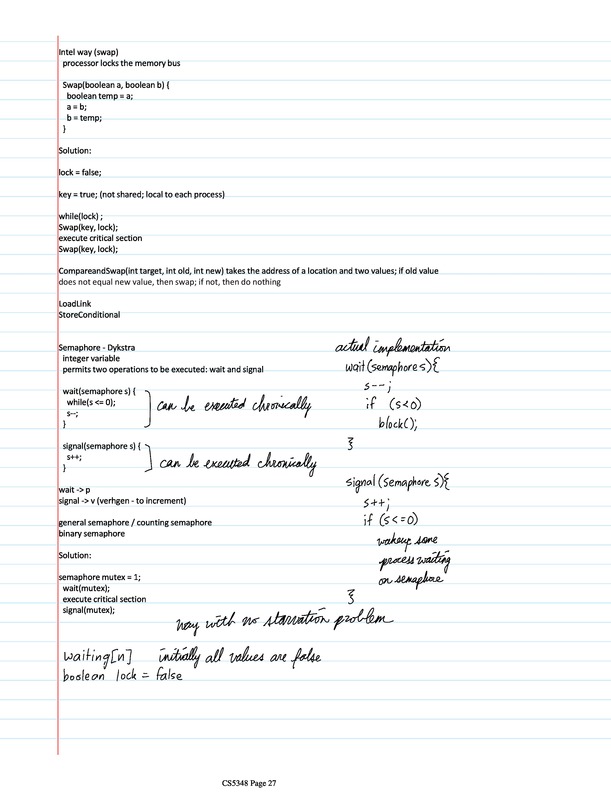 Intel way (swap)
processor locks the memory bus
Swap(boolean a, boolean b) {
boolean temp = a;
a = b;
b = temp;
}
Solution:
lock = false;
key = true; (not shared; local to each process)
while(lock) ;
Swap(key, lock);
execute critical section
Swap(key, lock);
CompareandSwap(int target, int old, int new) takes the address of a location and two values; if old value
does not equal new value, then swap; if not, then do nothing
LoadLink
StoreConditional
Semaphore - Dykstra
integer variable
permits two operations to be executed: wait and signal
wait(semaphore s) {
while(s <= 0);
s--;
}
can be executed chronically
signal(semaphore s) {
s++;
}
can be executed chronically
wait -> p
signal -> v (verhgen - to increment)
general semaphore / counting semaphore
binary semaphore
Solution:
semaphore mutex = 1;
wait(mutex);
execute critical section
signal(mutex);
actual implementation
wait(semaphore s){
s--;
if (s<0)
block();
}
signal(semaphore s){
s++;
if (s<=0)
wakeup some
process waiting
on semaphore
}
way with no starvation problem
waiting[n] initially all values are false
boolean lock = false
CS5348 Page 27